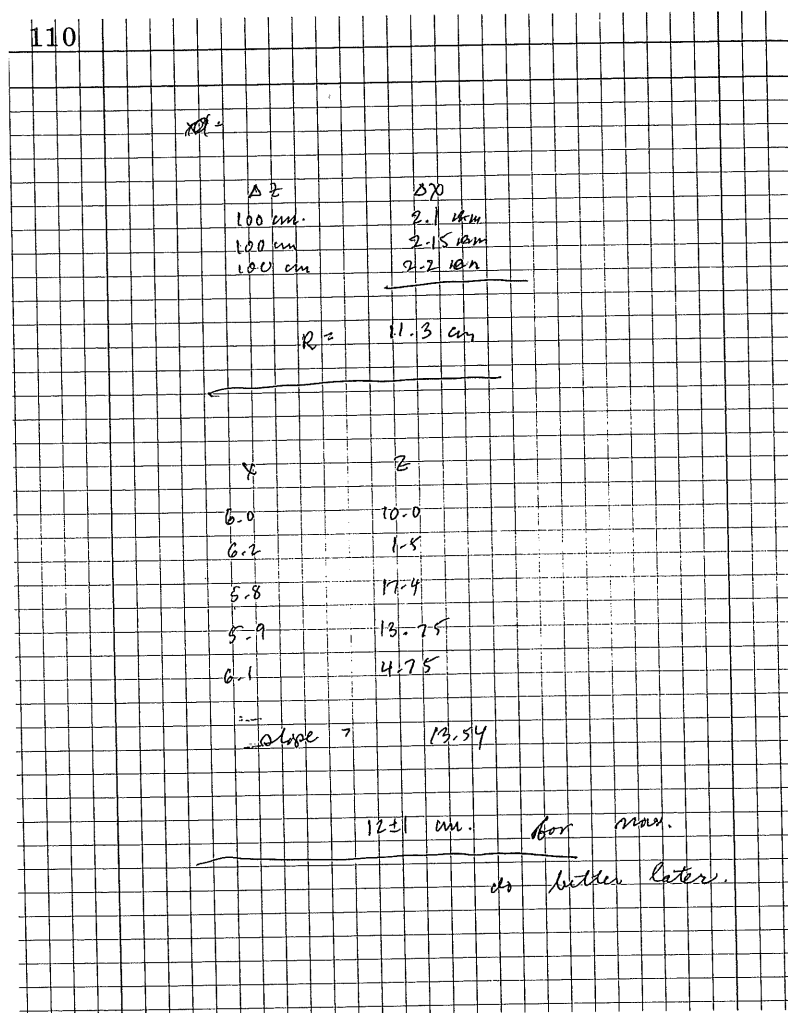 110
ΔZ ΔX
100 cm. 2.1
100 cm 2.15
100 cm 2.2
R = 11.3 cm
X Z
6.0 10.0
6.2 1.5
5.8 17.4
5.9 13.75
6.1 4.75
slope 13.54
12±1 cm. for now.
do better later.